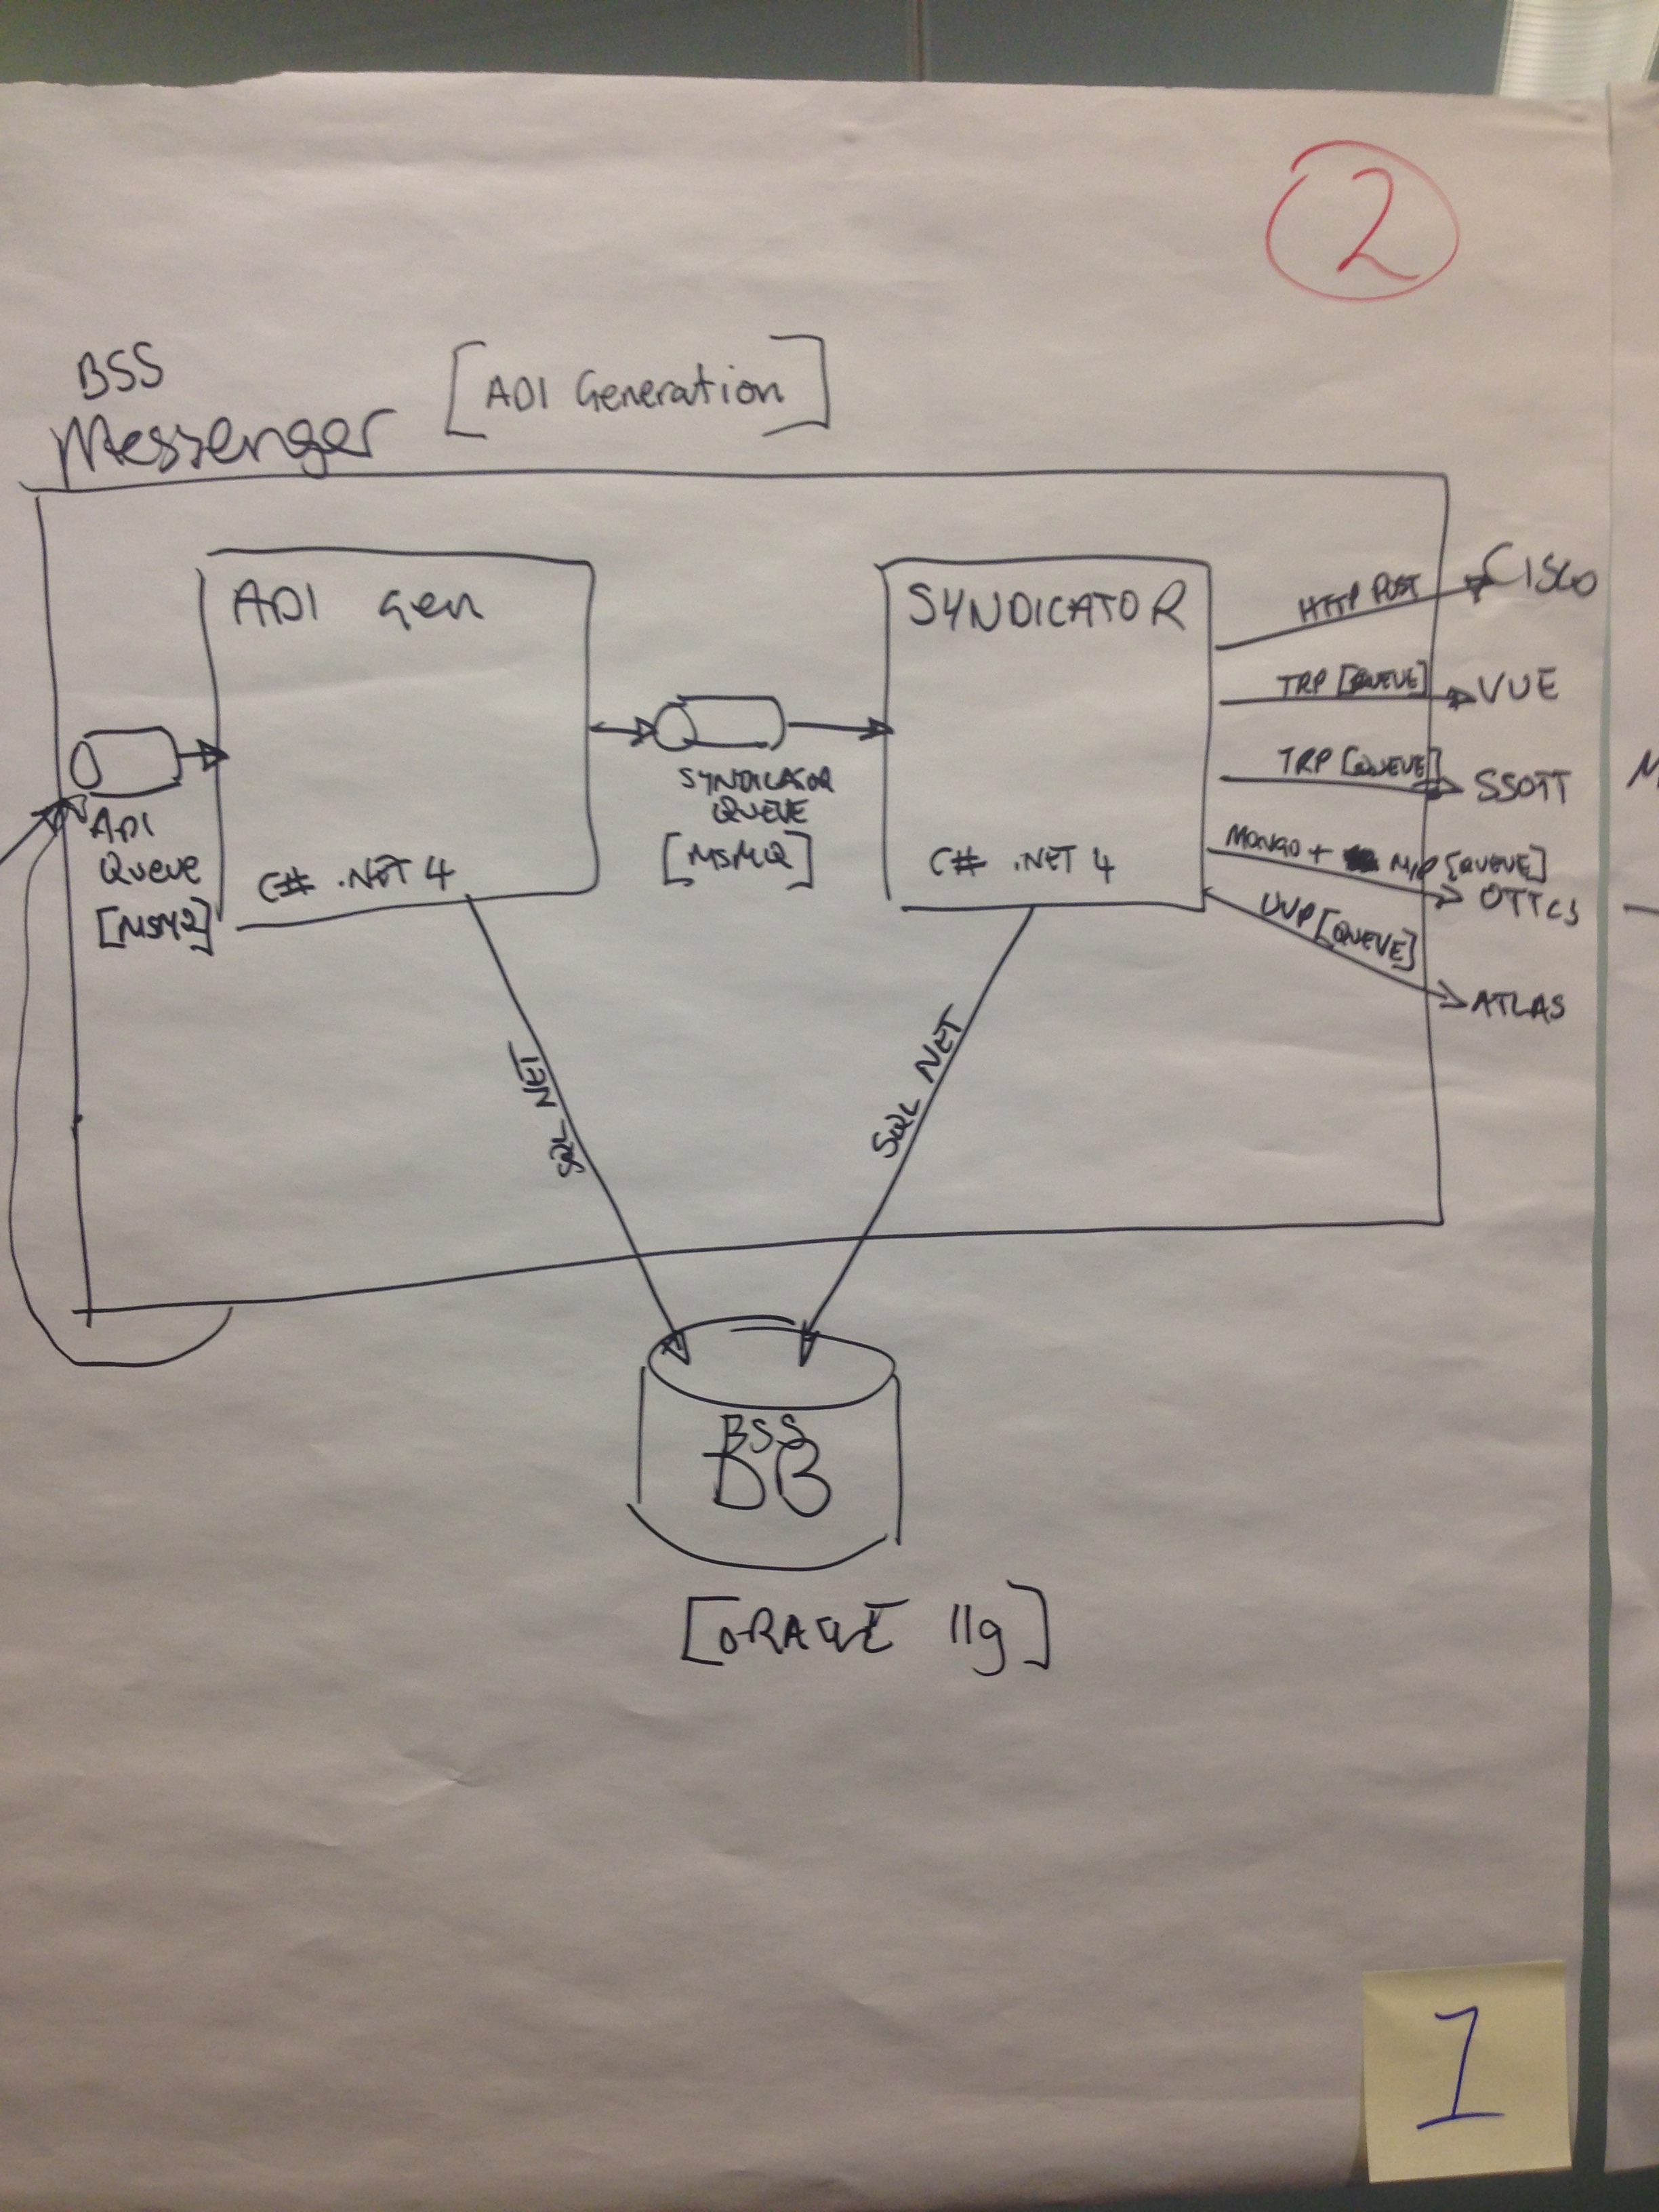 2
BSS
Messenger
[ADI Generation]
ADI Gen
C# .NET 4
ADI
Queue
[MSMQ]
SYNDICATOR
QUEUE
[MSMQ]
SYNDICATOR
C# .NET 4
HTTP POST
CISCO
TRP [QUEUE]
VUE
TRP [QUEUE]
SSOTT
MONGO + M/P [QUEUE]
OTTCS
UVP [QUEUE]
ATLAS
SQL NET
SQL NET
BSS
DB
[ORACLE 11g]
1